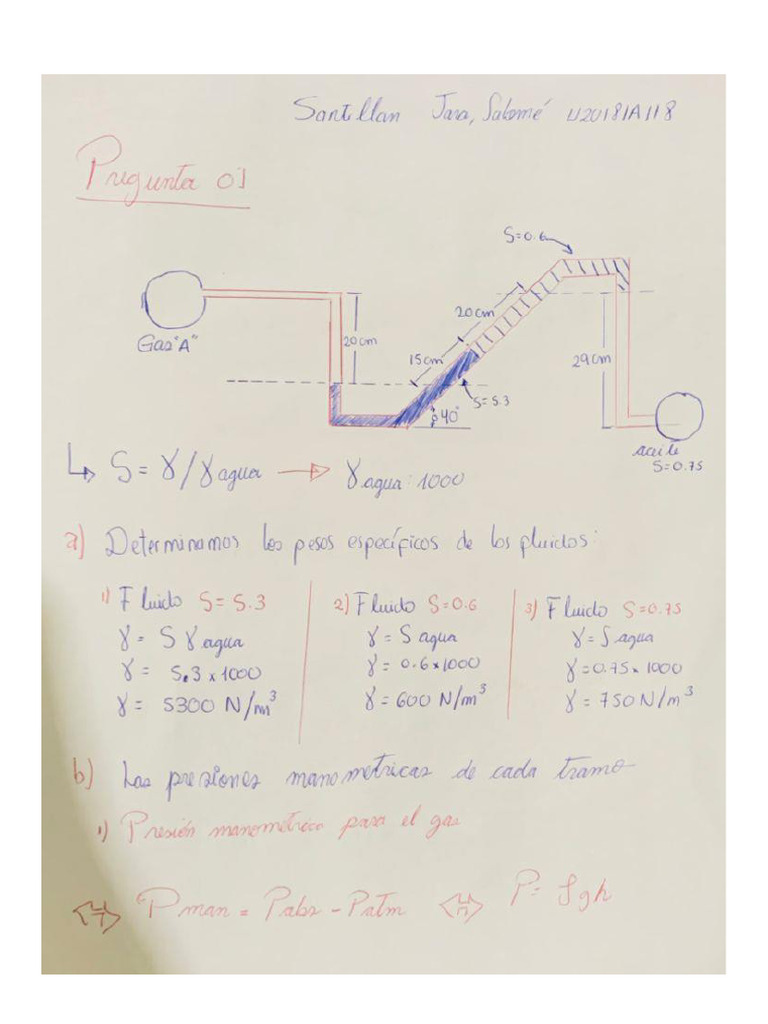 Santillan Jara, Salomé U20181A118
Pregunta 01
S=0.6
20cm
Gas "A"
20cm
15cm
29cm
S=5.3
40°
aceite
S=0.75
↳ S = γ/γagua → γagua: 1000
a) Determinamos los pesos específicos de los fluidos:
1) Fluido S=5.3
γ = S γagua
γ = 5.3 x 1000
γ = 5300 N/m³
2) Fluido S=0.6
γ = S agua
γ = 0.6x1000
γ = 600 N/m³
3) Fluido S=0.75
γ = S agua
γ=0.75x1000
γ = 750N/m³
b) Las presiones manometricas de cada tramo
1) Presión manométrica para el gas
Pman = Pabs - Patm P= ρgh